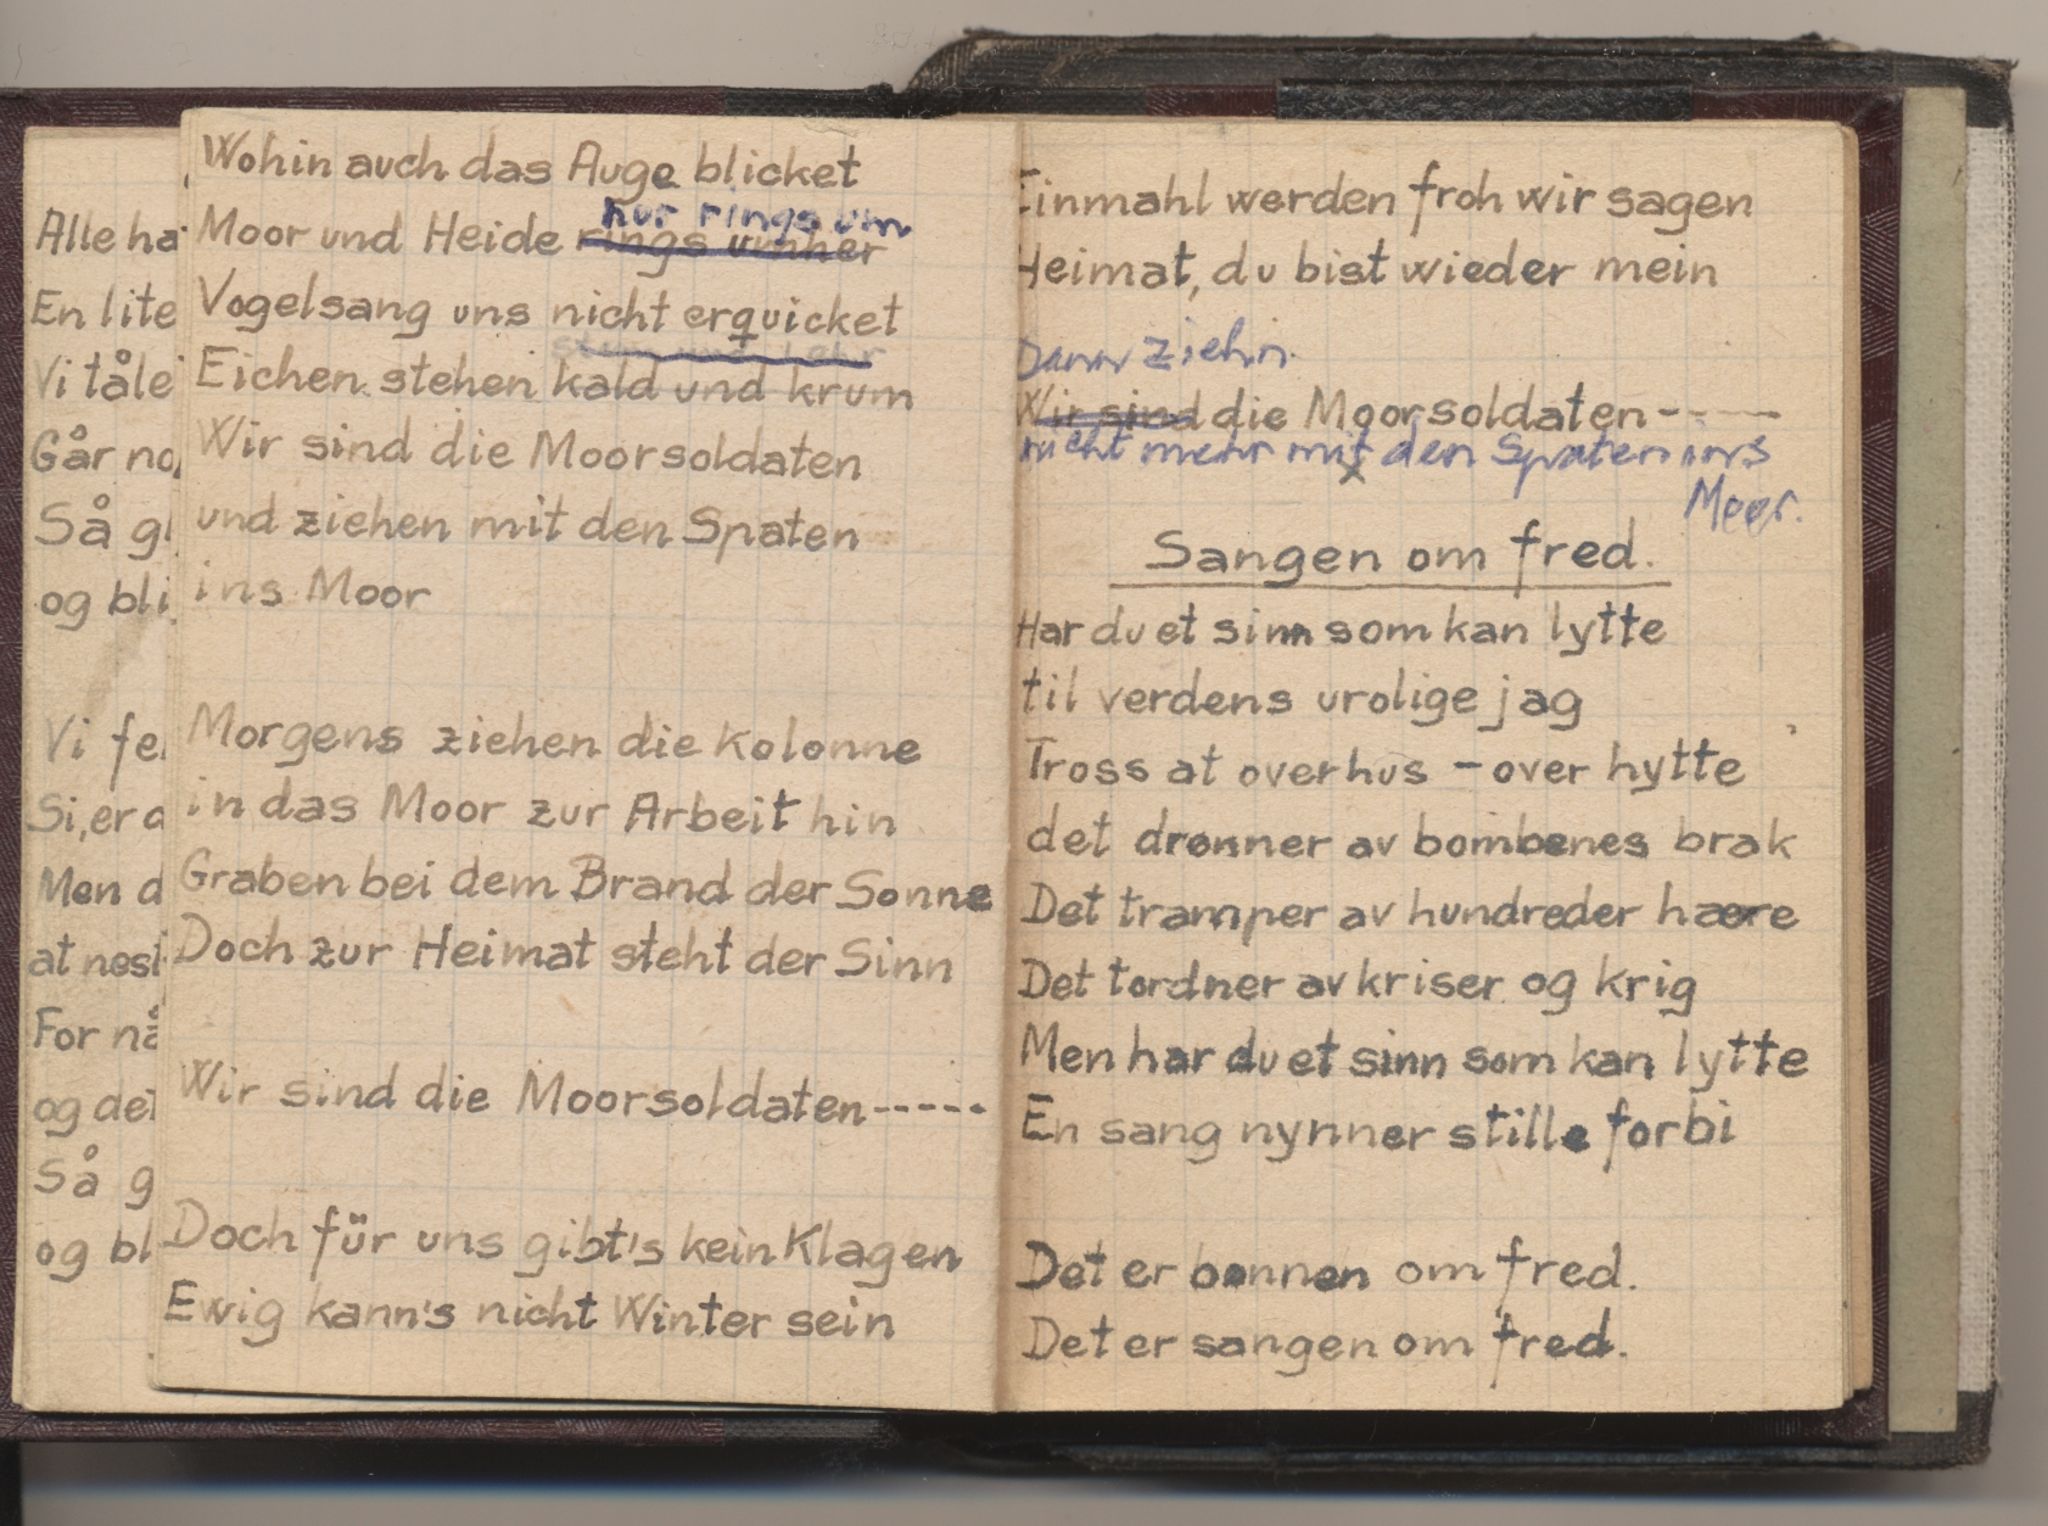 Alle ha
En lite
Vi tåle
Går no
Så gl
og bli
Vi fe
Si, er
Men d
at nes
For nå
og det
Så g
og bl
Wohin auch das Auge blicket
nur rings um
Moor und Heide rings umher
Vogelsang uns nicht erquicket
Eichen stehen kald und krum
Wir sind die Moorsoldaten
und ziehen mit den Spaten
ins Moor
Morgens ziehen die Kolonne
in das Moor zur Arbeit hin
Graben bei dem Brand der Sonne
Doch zur Heimat steht der Sinn
Wir sind die Moorsoldaten-----
Doch für uns gibt's kein Klagen
Ewig kann's nicht Winter sein
Einmahl werden froh wir sagen
Heimat, du bist wieder mein
Dann ziehn
Wir sind die Moorsoldaten----
nicht mehr mit den Spaten ins
x
Moor.
Sangen om fred.
Har du et sinn som kan lytte
til verdens urolige jag
Tross at over hus - over hytte
det drønner av bombenes brak
Det tramper av hundreder hære
Det tordner av kriser og krig
Men har du et sinn som kan lytte
En sang nynner stille forbi
Det er bønnen om fred.
Det er sangen om fred.